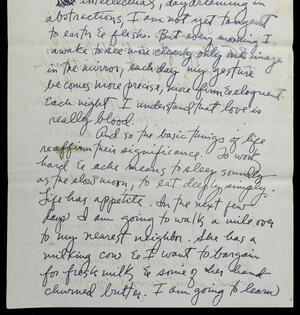 intellectuals, daydreaming in
abstractions, I am not yet tangent
to earth & flesh. But every morning I
awake to see more clearly only one image
in the mirror, each day my gesture
becomes more precise, more firm & eloquent.
Each night I understand that love is
really blood.
And so the basic things of life
reaffirm their significance. To work
hard & ache means to sleep soundly
as the slow moon, to eat deeply, simply.
Life has appetite. In the next few
days I am going to walk a mile over
to my nearest neighbor. She has a
milking cow & I want to bargain
for fresh milk & some of her hand
churned butter. I am going to learn